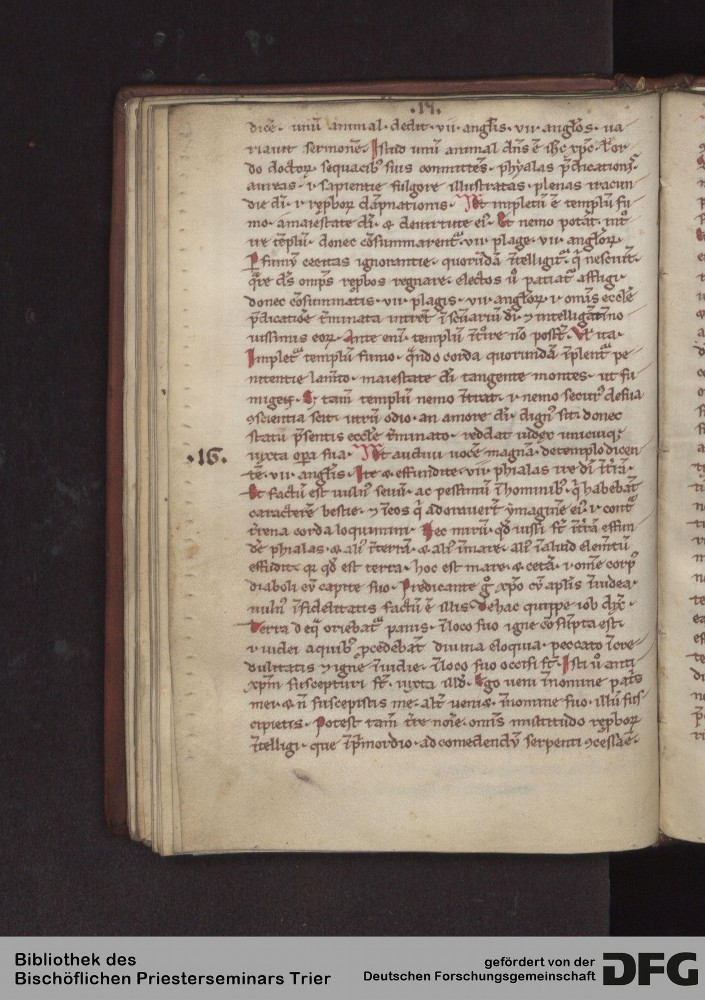 .14.
dicē. unū animal. dedit. vii. angłis. vii. angłos. ua
riauit sermonē. Istud unū animal dn̄s ē ih̄c xp̄c. łor
do doctoꝝ. sequacibꝰ suis committēs. phyalas p̄dicationis.
aureas. ⁊ sapientie fulgore illustratas. plenas iracun
die di. ⁊ rep̄boꝝ dāpnationis. Et impletū ē templū fu
mo. amaiestate di. ⁊ deuirtute eiꝰ. Et nemo potāt int
ire tēplū. donec cōsummarent. vii. plage. vii. angłoꝝ.
P fumū cecitas ignorantie. quorundā ītelligit. q̄ nescunt.
qre dn̄s omps rep̄bos regnare. electos u̾ patiat affligi.
donec cōsummatis. vii. plagis. vii. angłoꝝ. ⁊ omīs eccłe
p̄dicatiōe t̄minata intret ī scn̄arium di. ⁊ intelligat ī no
uissimis eoꝝ. Ante eni. templū īt̄ire nō post. Vł ita.
Implet templū fumo. qn̄do corda quorundā īplent pe
nitentie lamto. maiestate di tangente montes. ut fu
migent. Et tam̄ templū nemo īt̄rat. ⁊ nemo securꝰ de sua
ꝯscientia scit. utrū odio. an amore di. dignꝰ sit. donec
statū p̄sentis eccłe t̄minato. reddat iudex unicuiqꝫ
iuxta opa sua. Et audiui uocē magnā. detemplo dicen
.16.
tē. vii. angłis. Ite ⁊ effundite. vii. phialas ire di ī t̄rā.
Et factū est uulnꝰ seuū. ac pessimū ī hominibꝰ. q̄ habebāt
caracterē bestie. ⁊ ī eos q̄ adorauert ymaginē eiꝰ. ⁊ cont
t̄rena corda loquuntur. Nec mirū. qd̄ iussi st̄ ī t̄rā effun
de phialas. ⁊ aliꝰ ī terrā. ⁊ aliꝰ ī mare. aliꝰ ī aliud elemtū
effudit. qr qd̄ est terra. hoc est mare. ⁊ cetā. ⁊ omē corpꝰ
diaboli cū capite suo. Predicante g̊ xp̄o cū apłis ī iudea.
uulnꝰ ī fidelitatis factū ē illis. De hac quippe iob dix̄.
Terra de q̄ oriebat panis. ī loco suo igne cōsūpta est.
⁊ iudei a quibꝰ p̄cedebāt diuina eloquia. peccato īcre
dulitatis ⁊ igne īuidie. ī loco suo occisi st̄. Isti u̾ anti
xp̄m suscepturi st̄. iuxta illd̄. Ego ueni ī nomine pat̄s
mei. ⁊ n̄ suscepistis me. alt̄ ueniet. ī nomine suo. illū sus
cipietis. Potest tam̄ t̄re noīe. omīs multitudo rep̄boꝝ
ītelligi. que ī p̄mordio. ad comedendū serpenti ꝯcessa ē.
Bibliothek des
Bischöflichen Priesterseminars Trier
gefördert von der
Deutschen Forschungsgemeinschaft
DFG